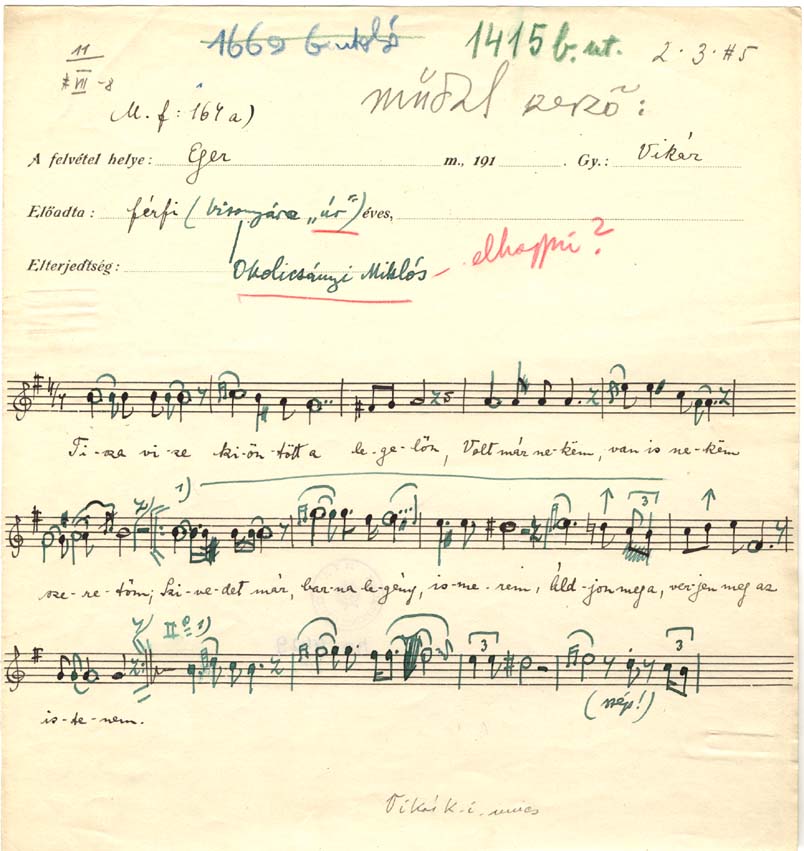 1415 b. ut. 2·3·#5
11
VII -8
M. f: 164 a)
műdal szerző:
A felvétel helye: Eger m., 191 . Gy.: Vikár
Előadta: férfi ( „úr”) éves,
Elterjedtség: Okolicsányi Miklós – ?
Ti-sza vi-ze ki-ön-tött a le-ge-lőn, Volt már ne-kem, van is ne-kem
1)
3
sze-re-tőm; Szi-ve-det már, bar-na le-gény, is-me-rem, Áld-jon meg a, ver-jen meg az
II° 1)
3 3
is-te-nem. (szép!)
Vikár